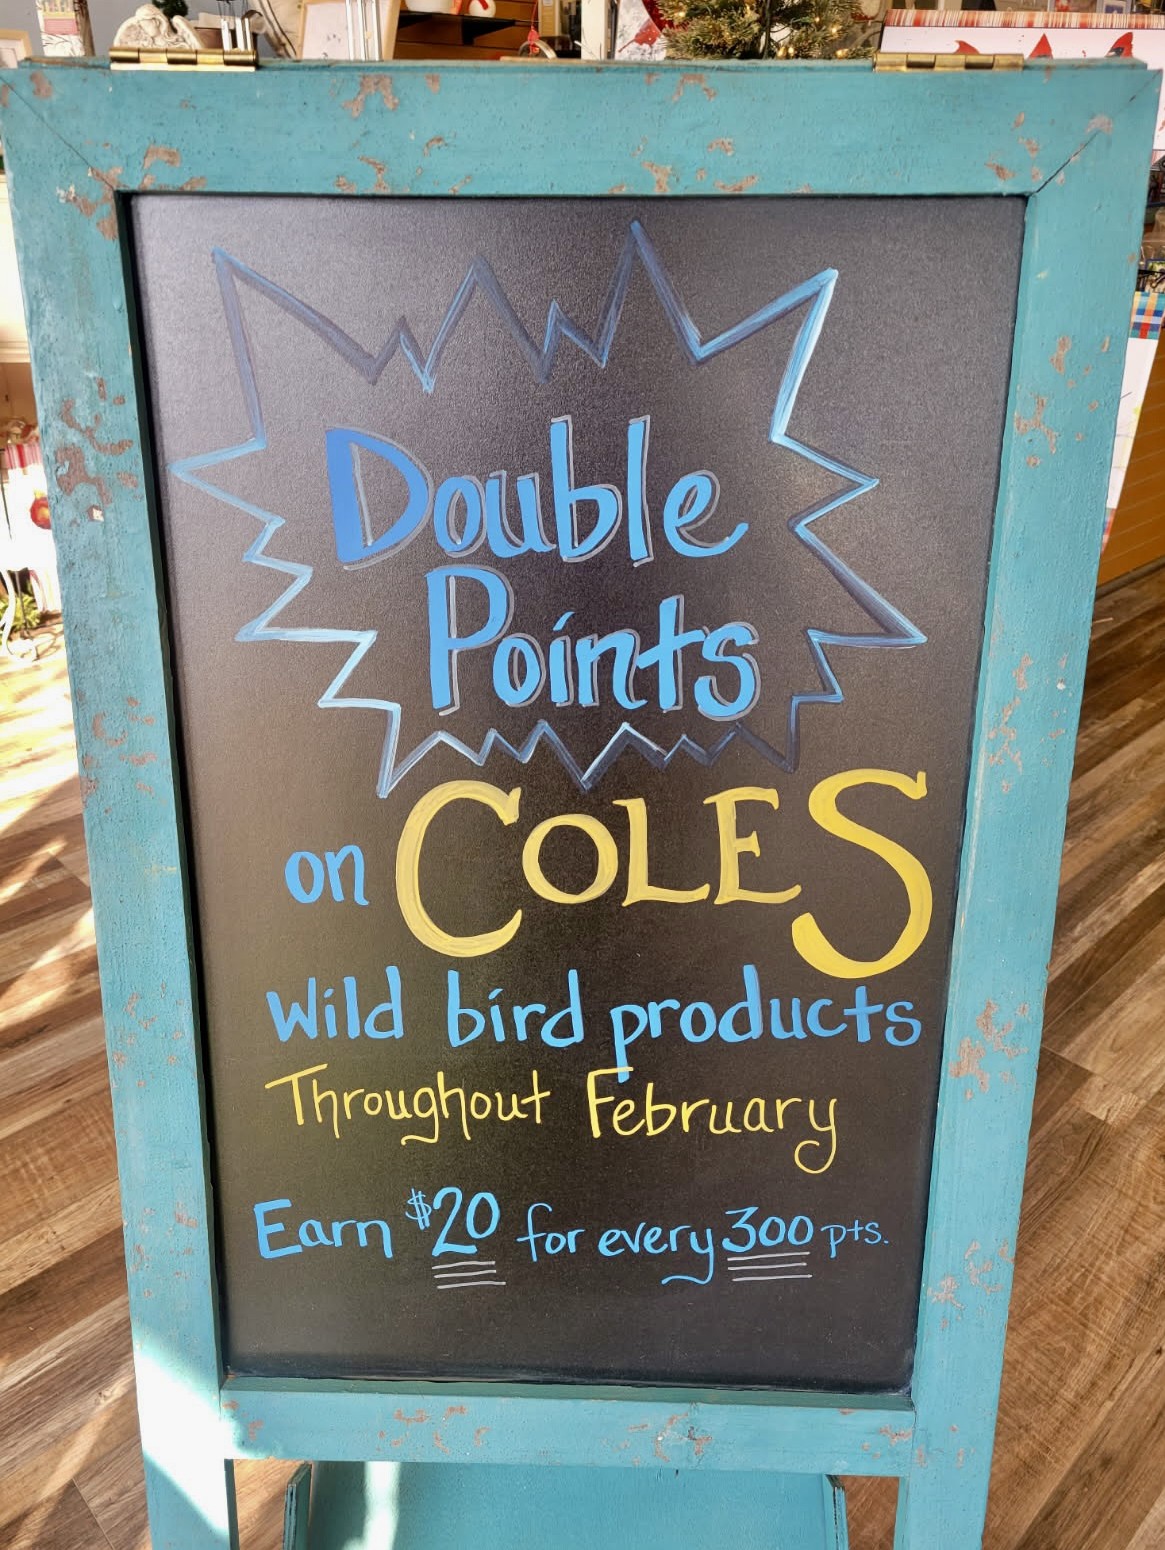 Double
Points
on COLES
Wild bird products
Throughout February
Earn $20 for every 300 pts.